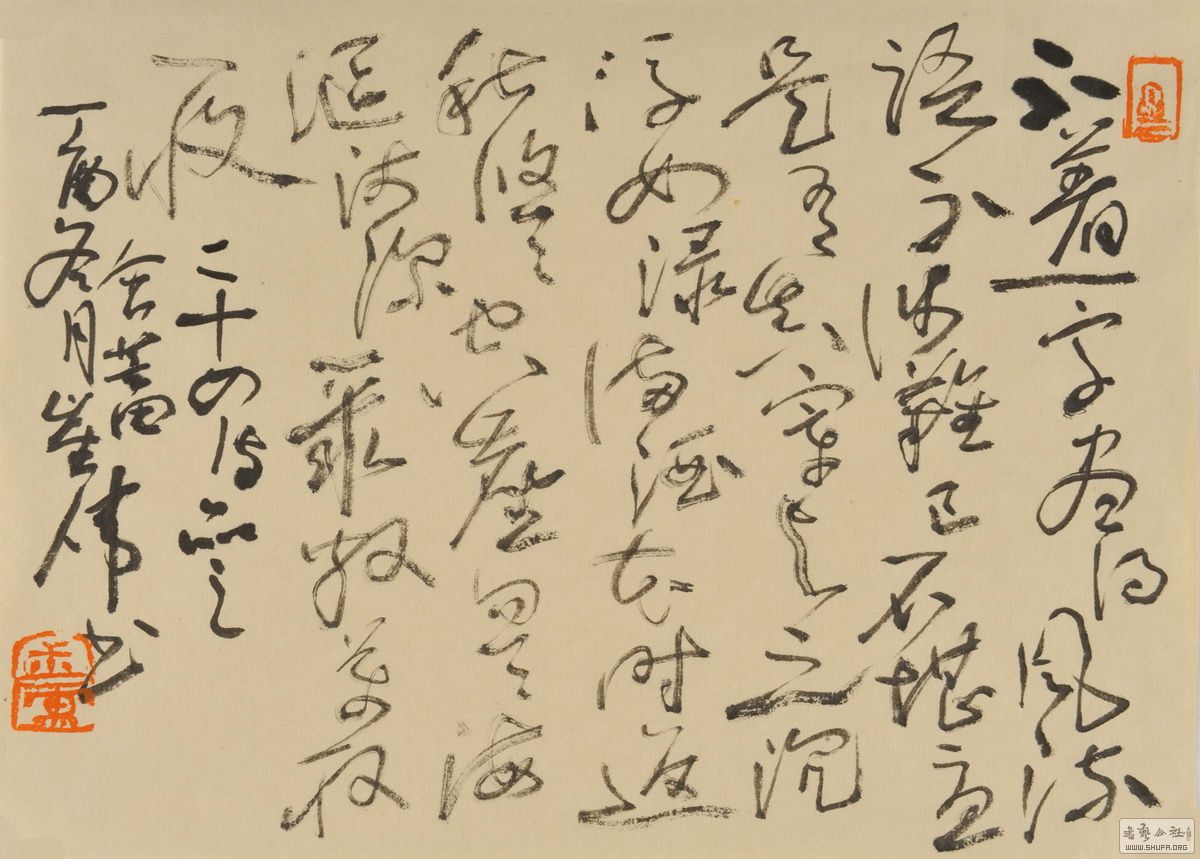 不著一字盡得風流
語不涉難已不堪憂
是有真宰與之沉
浮如渌滿酒花時返
秋悠悠空塵忽忽海
漚淺深聚散萬取
一收 二十四詩品之
含蓄
丁酉冬月崔偉書
書藝公社
WWW.SHUFA.ORG